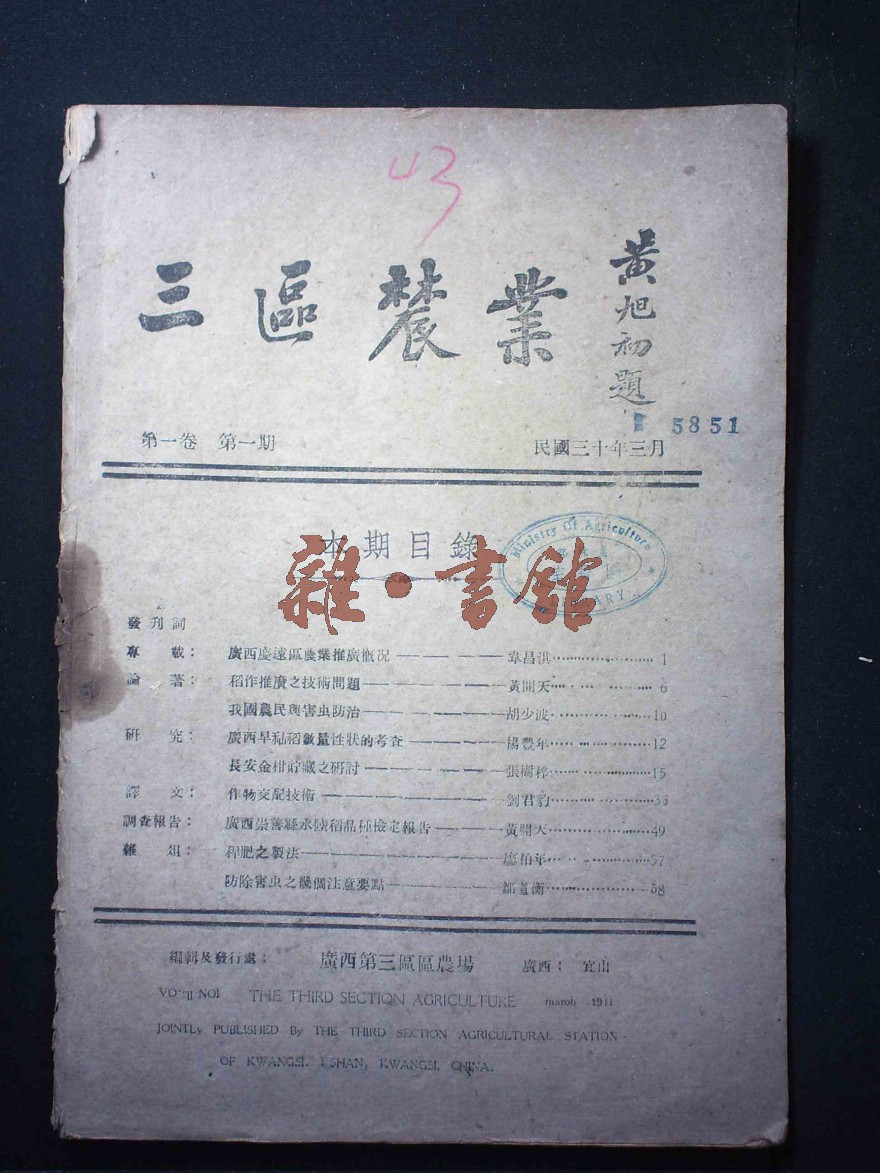 43
三區農業
黃旭初題
5851
第一卷 第一期
民國三十年三月
本期目錄
Ministry Of Agriculture
LIBRARY
雜·書館
發刊詞
專 載： 廣西慶遠區農業推廣概況————韋昌洪……………… 1
論 著： 稻作推廣之技術問題————黃開天……………… 6
我國農民與害虫防治————胡少波……………… 10
研 究： 廣西早秈稻數量性狀的考查————楊豐年……………… 12
長安金柑貯藏之研討————張樹梓……………… 15
譯 文： 作物交配技術————劉君豹……………… 35
調查報告： 廣西崇善縣水陸稻品種檢定報告————黃開天……………… 49
雜 俎： 稈肥之製法————廖柏年……………… 57
防除害虫之幾個注意要點————鄒衡……………… 58
編輯及發行處： 廣西第三區區農場 廣西： 宜山
NO1 THE THIRD SECTION AGRICULTURE maroh 1911
JOINTLy PUBLISHED By THE THIRD SECTION AGRICULTURAL STATION
OF KWANGSI. ISHAN, KWANGSI, CHINA.